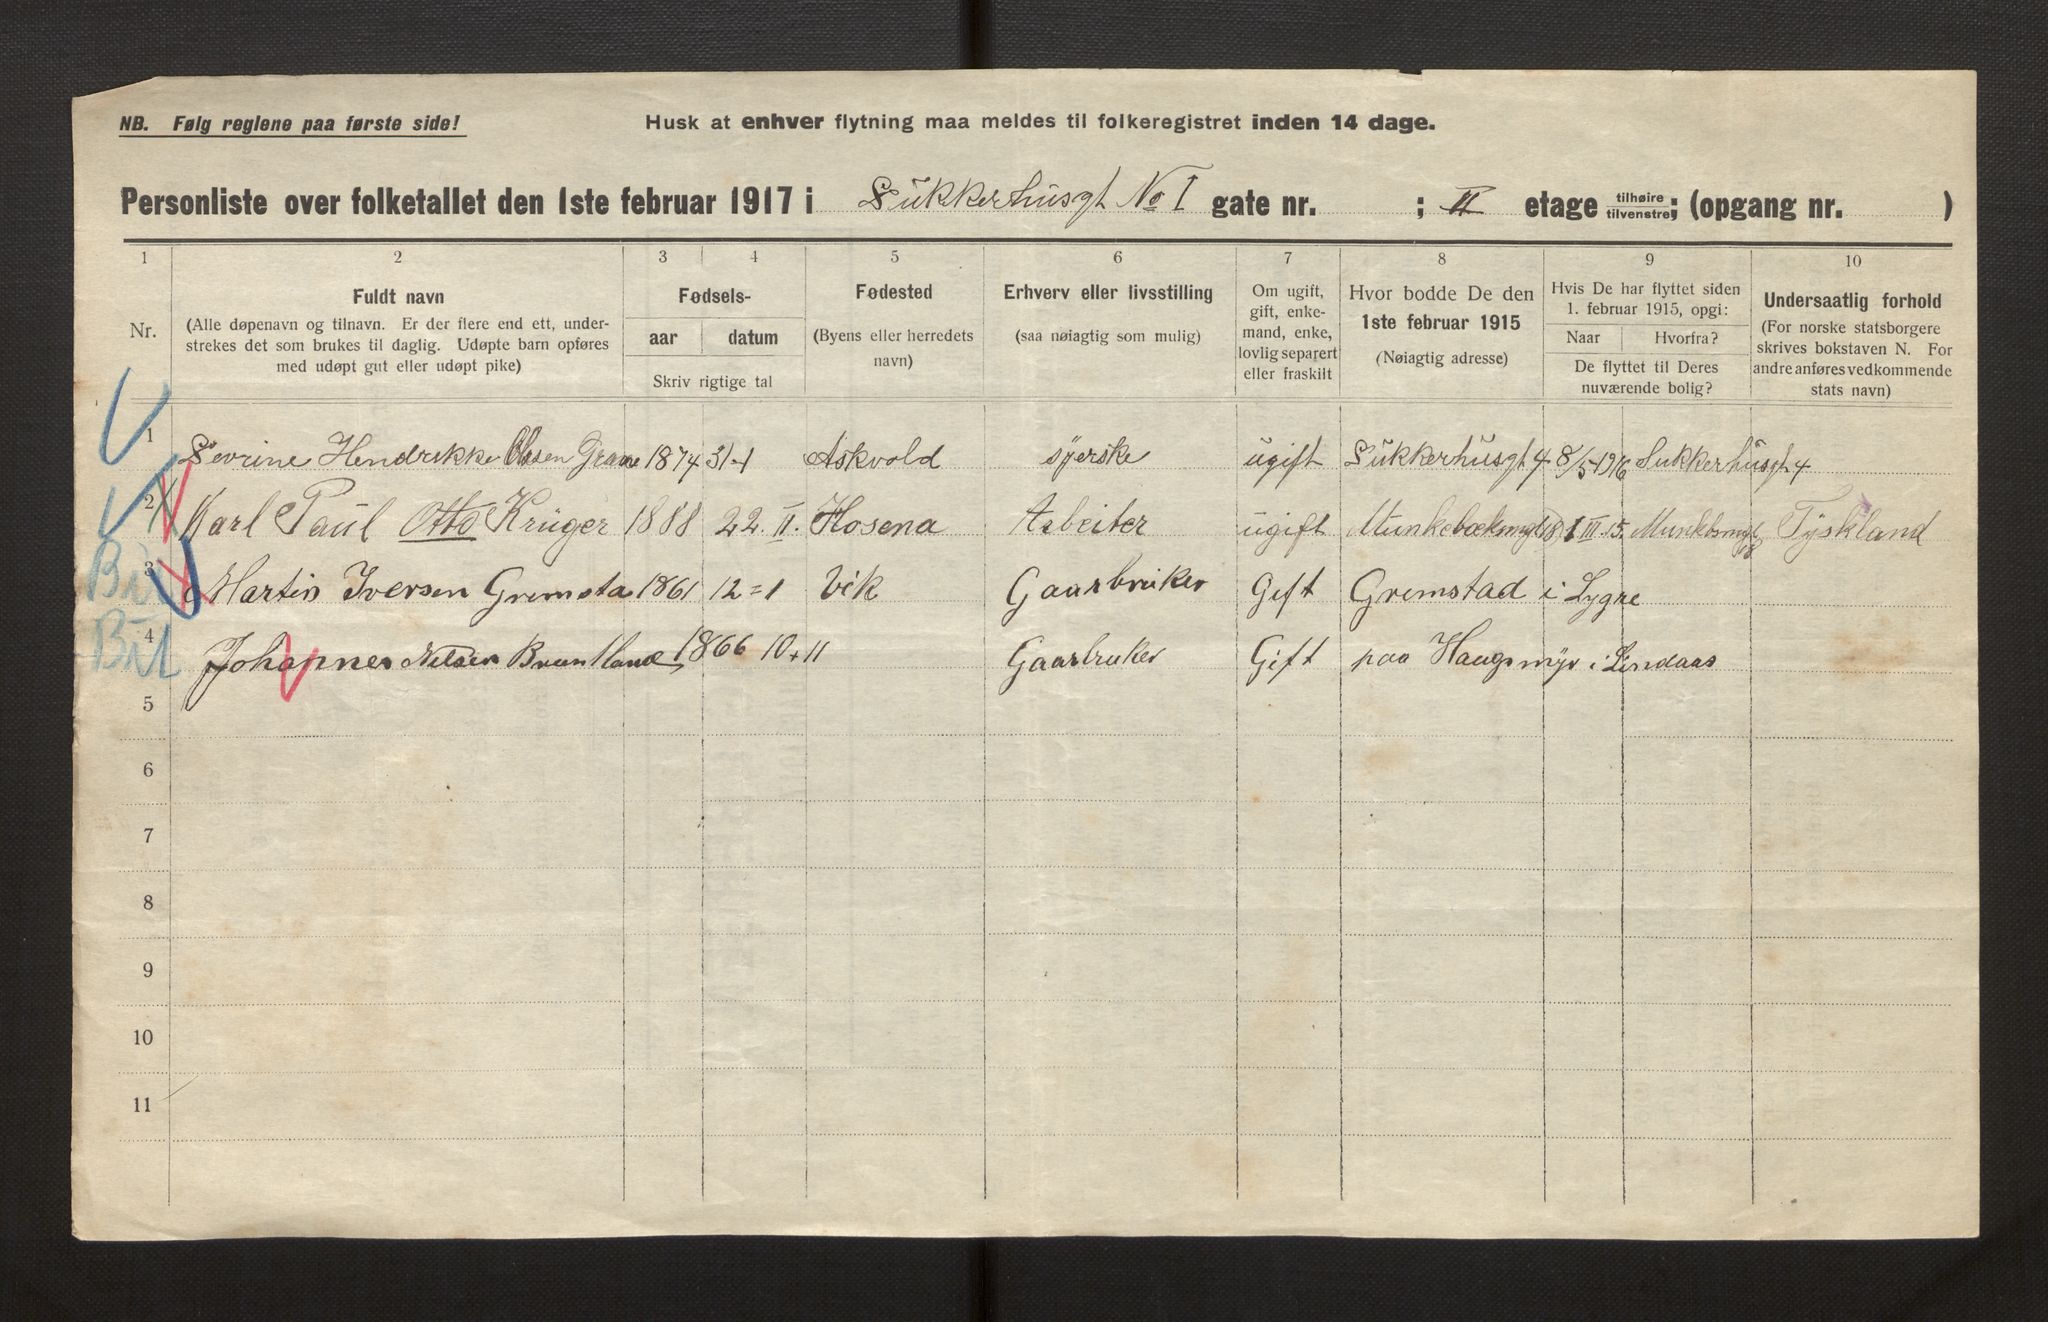 NB. Følg reglene paa første side!
Husk at enhver flytning maa meldes til folkeregistret inden 14 dage.
Personliste over folketallet den 1ste februar 1917 i Sukkerhusgt No I gate nr. ; II etage tilhøire tilvenstre; (opgang nr. )
1 2 3 4 5 6 7 8 9 10
Nr.
Fuldt navn
(Alle døpenavn og tilnavn. Er der flere end ett, under-
strekes det som brukes til daglig. Udøpte barn opføres
med udøpt gut eller udøpt pike)
Fødsels-
aar datum
Skriv rigtige tal
Fødested
(Byens eller herredets
navn)
Erhverv eller livsstilling
(saa nøiagtig som mulig)
Om ugift,
gift, enke-
mand, enke,
lovlig separert
eller fraskilt
Hvor bodde De den
1ste februar 1915
(Nøiagtig adresse)
Hvis De har flyttet siden
1. februar 1915, opgi:
Naar Hvorfra?
De flyttet til Deres
nuværende bolig?
Undersaatlig forhold
(For norske statsborgere
skrives bokstaven N. For
andre anføres vedkommende
stats navn)
1 Sevrine Hendrikke Olsen 1874 31-1 Askvold syerske ugift Sukkerhusgt 4 8/5-1916 Sukkerhusgt 4
2 Karl Paul Otto Krüger 1888 22. II. Hosena Arbeiter ugift 1 III. 15. Tyskland
3 Martin Iversen Gremsta 1861 12=1 Vik Gaarbruker Gift Gremstad i Lygre
4 Johannes Nilsen 1866 10+11 Gaarbruker Gift paa Haugsmyr i Lindaas
5
6
7
8
9
10
11